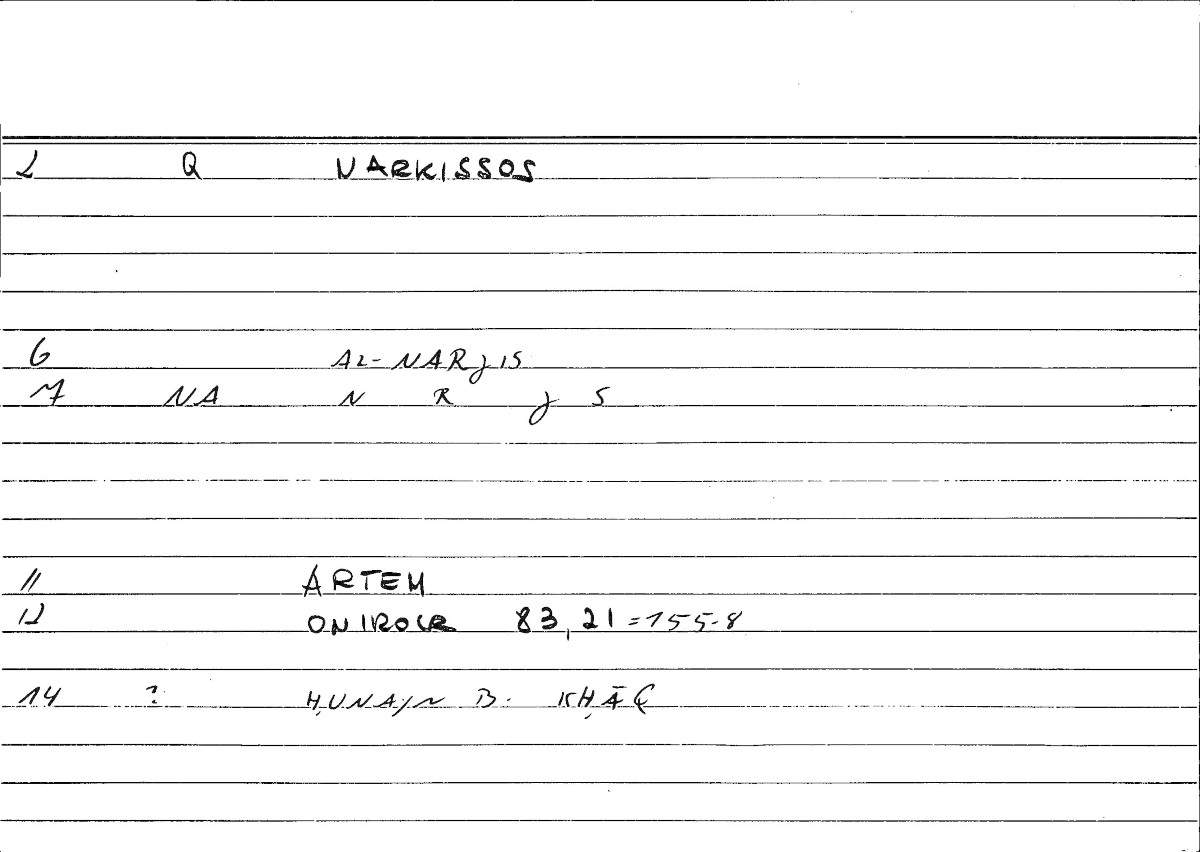 2 Q NARKISSOS
6 AL-NARJIS
7 NA N R J S
11 ARTEM
12 ONIROCR 83,21=155-8
14 ? ḤUNAYN B.